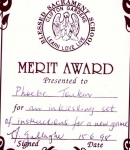 BLESSED SACRAMENT SCHOOL
CLIFTON GARDENS
LEARN LOVE LIVE
MERIT AWARD
Presented to
Phoebe
for an interesting set
of instructions for a new game
Gallagher 15.6.98
Signed Date